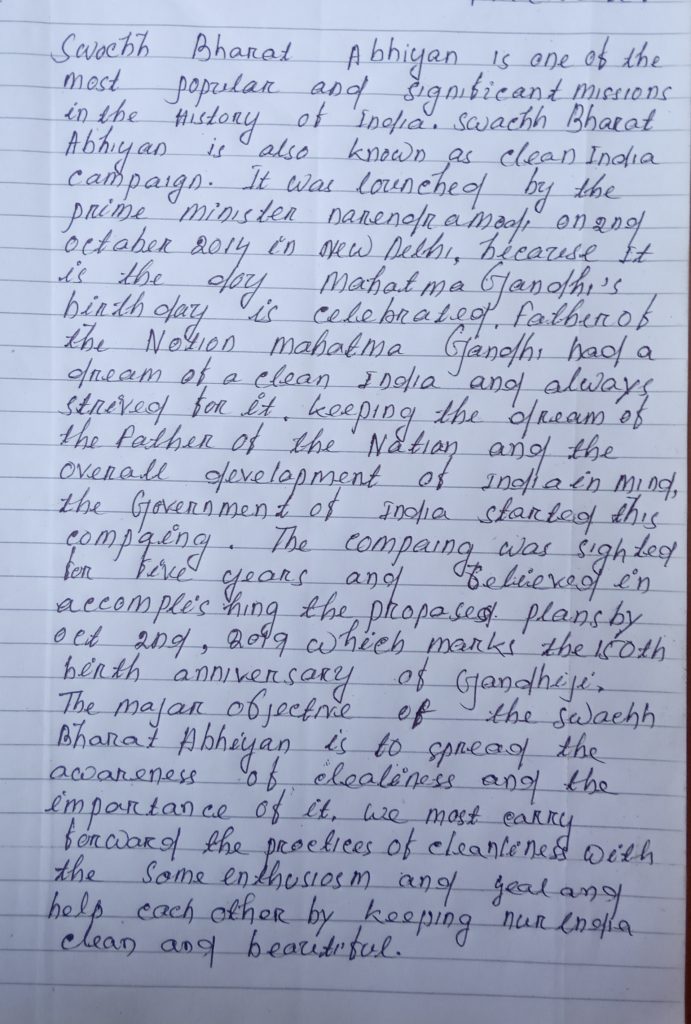 Swachh Bharat Abhiyan is one of the
most popular and significant missions
in the History of India. Swachh Bharat
Abhiyan is also known as clean India
campaign. It was lounched by the
prime minister narendra modi on 2nd
octaber 2014 in new Delhi, because It
is the doy mahatma Gandhi's
birthday is celebrated. father of
the Notion mahatma Gandhi had a
dream of a clean India and always
streved for it. keeping the dream of
the father of the Nation and the
overall development of India in mind,
the Government of India started this
compaing. The compaing was sighted
for five years and believed in
accomplishing the propased plans by
oct 2nd, 2019 which marks the 150th
birth anniversary of Gandhiji.
The majar objective of the swachh
Bharat Abheyan is to spread the
awareness of clealiness and the
impartance of it. we most carry
forward the proctices of cleanliness with
the some enthusiosm and zeal and
help each other by keeping India
clean and beautiful.